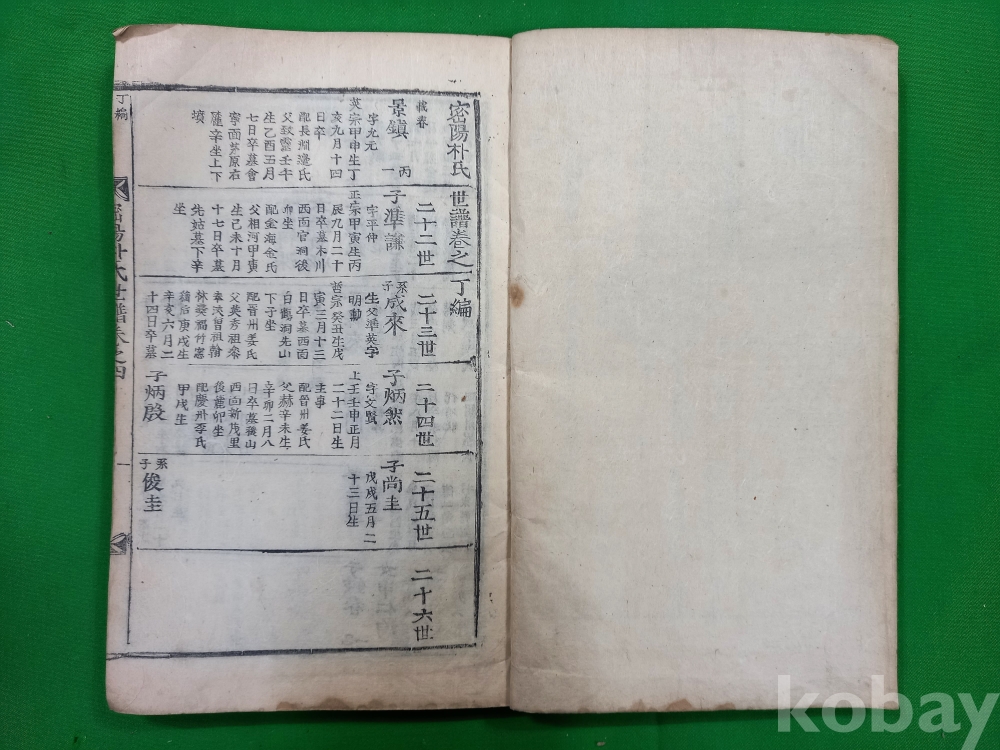 密陽朴氏世譜卷之丁編
二十二世
二十三世
二十四世
二十五世
二十六世
景鎭
丙一
字允元
英宗甲申生丁
亥九月十四
日卒
配長淵邊氏
父致靈壬午
生乙酉五月
七日卒墓會
寧面茅原右
麓辛坐上下
墳
子準謙
字平仲
正宗甲寅生丙
辰九月二十
日卒墓木川
西面官洞後
卯坐
配金海金氏
父相河甲寅
生己未十月
十七日卒墓
先姑墓下辛
坐
系子成來
生父準英字
明勳
哲宗癸丑生戊
寅三月十三
日卒墓西面
白鶴洞先山
下子坐
配晋州姜氏
父英秀祖
曾祖翰
林
庚戌生
辛亥六月二
十四日卒墓
子炳然
字文賢
上王壬申正月
二十二日生
主事
配晋州姜氏
父赫辛未生
辛卯二月八
日卒墓後山
西面新茂里
後麓卯坐
配慶州李氏
甲戌生
子炳殷
子尚圭
戊戌五月二
十三日生
系子俊圭
丁編
密陽朴氏世譜卷之四
一
kobay